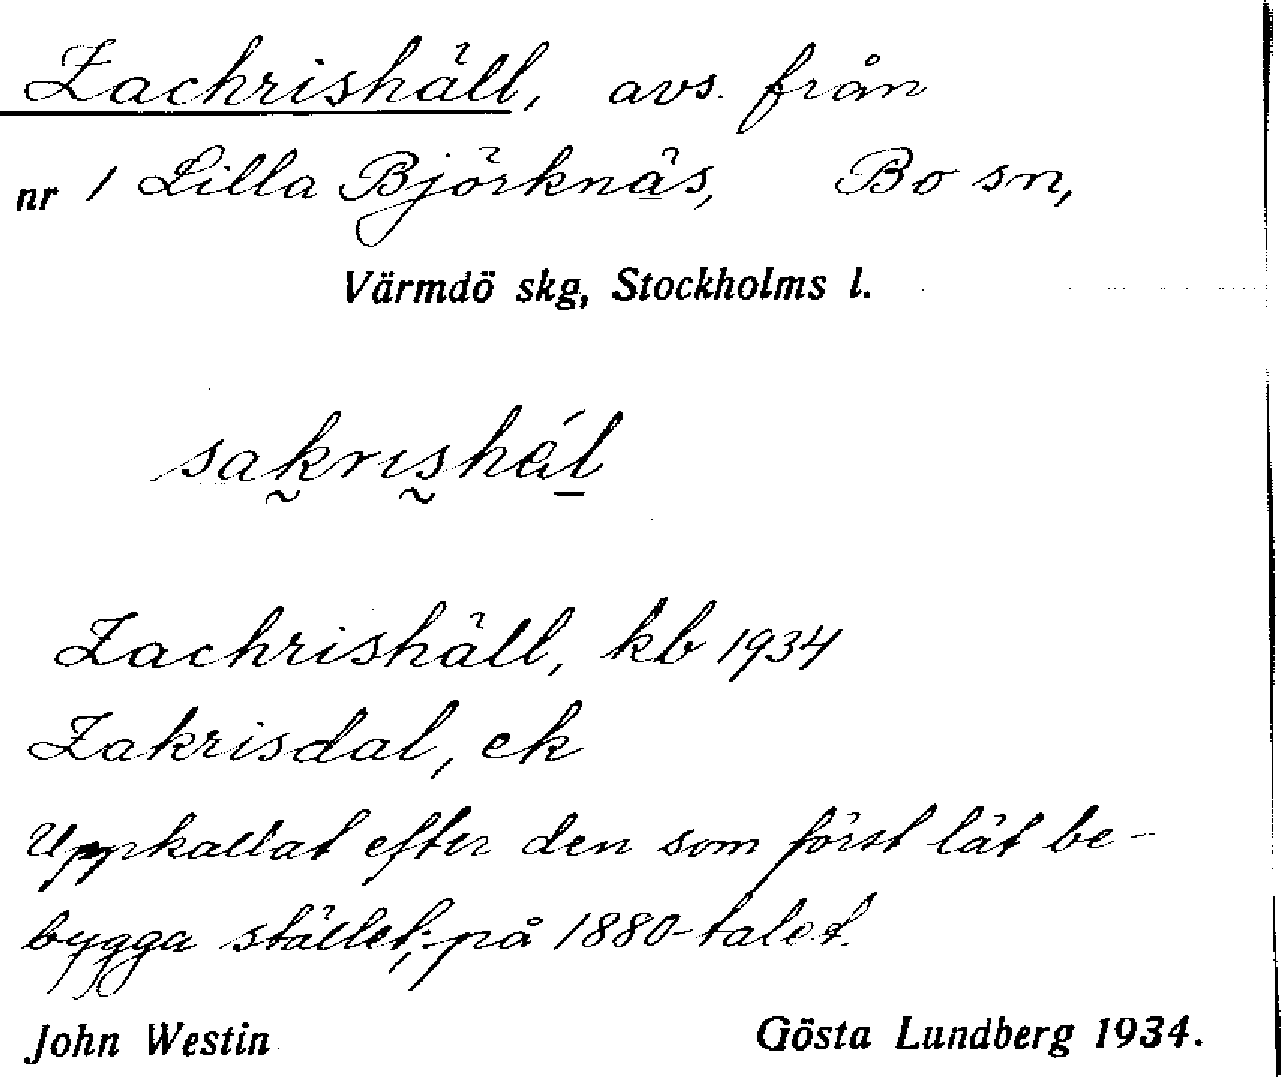 Zachrishäll, avs. från
nr 1 Lilla Björknäs, Bo sn,
Värmdö skg, Stockholms l.
sak̰ris̰hál̠
Zachrishäll, kb 1934
Zakrisdal, ek
Uppkallat efter den som först lät be-
bygga stället; på 1880-talet.
John Westin Gösta Lundberg 1934.